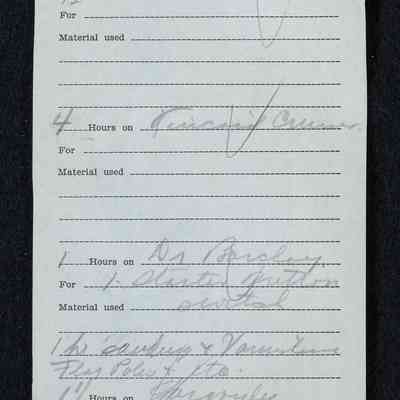 For
Material used
4 Hours on
For
Material used
1 Hours on Dr Barclay
For 1- Starter button
Material used switch
1 hr sanding & Varnishing
Flag Poles & etc.
1 Hours on